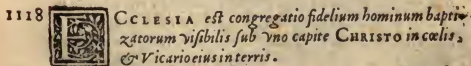 1118 ECCLESIA est congregatio fidelium hominum bapti-
zatorum visibilis sub vno capite CHRISTO in cœlis,
& Vicario eius in terris.